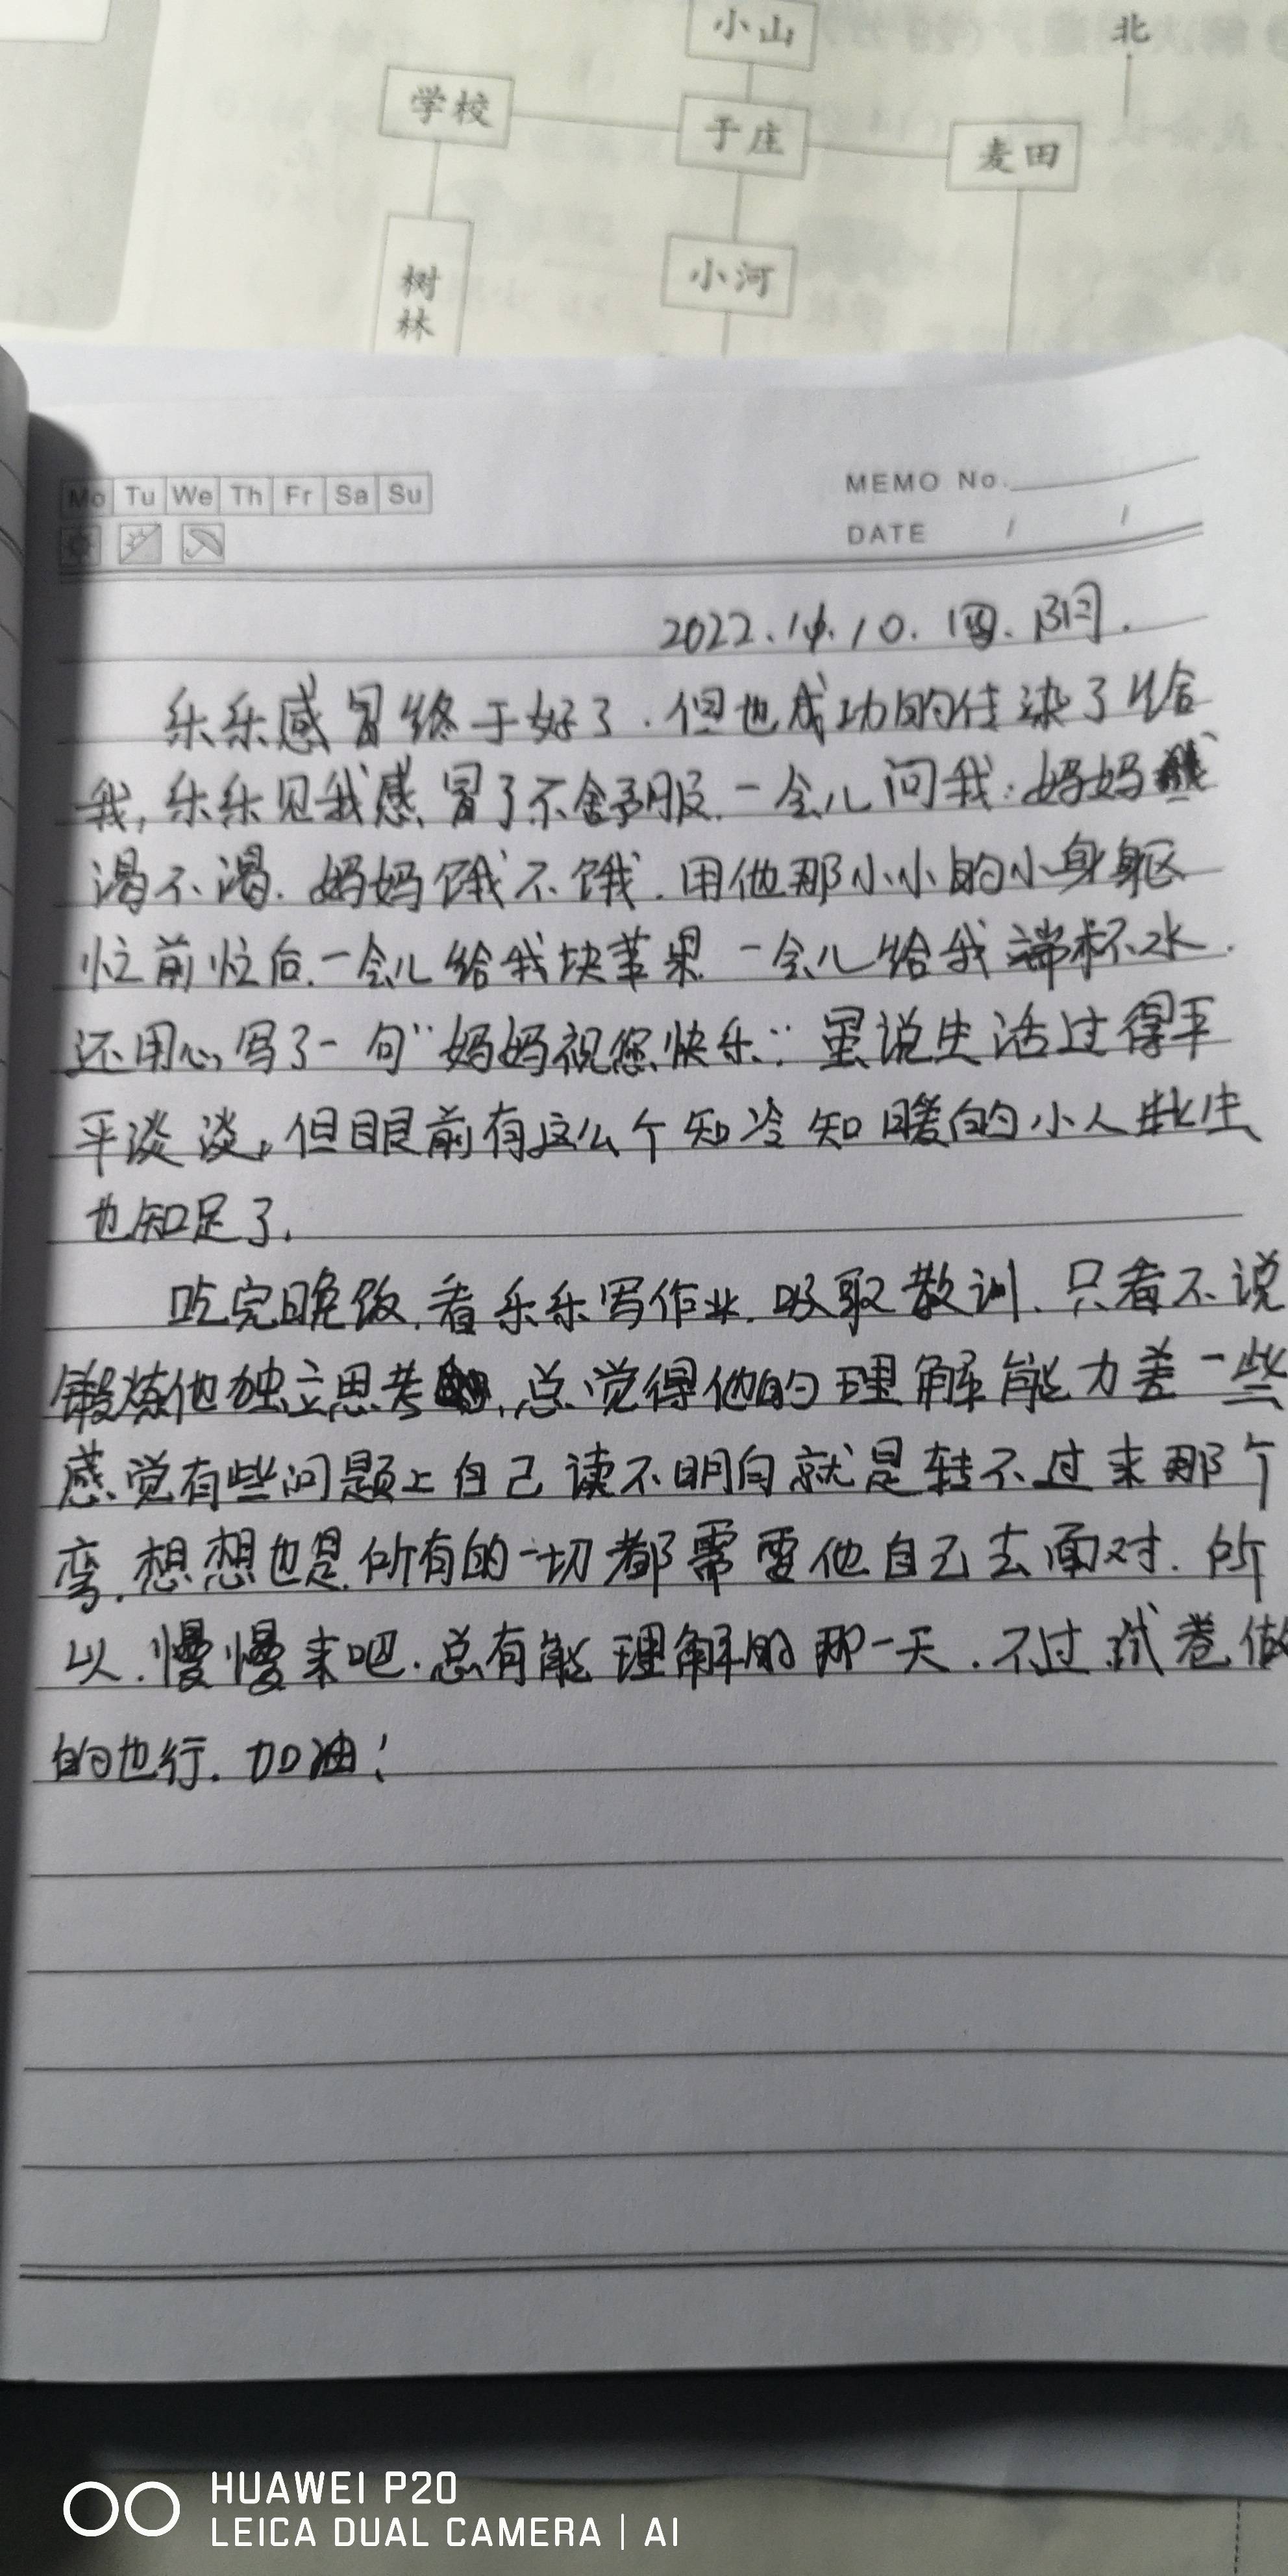 小山
北
学校
于庄
麦田
树林
小河
Mo Tu We Th Fr Sa Su
MEMO No.
DATE / /
2022. .10. 四. 阴.
乐乐感冒终于好了.但也成功的传染了给
我,乐乐见我感冒了不舒服.一会儿问我:妈妈
渴不渴.妈妈饿不饿.用他那小小的小身躯
忙前忙后.一会儿给我块苹果 一会儿给我端杯水.
还用心写了一句“妈妈祝您快乐”虽说生活过得平
平谈谈,但眼前有这么个知冷知暖的小人此生
也知足了.
吃完晚饭.看乐乐写作业.吸取教训.只看不说
锻炼他独立思考.总觉得他的理解能力差一些
感觉有些问题上自己读不明白就是转不过来那个
弯.想想也是.所有的一切都需要他自己去面对.所
以.慢慢来吧.总有能理解的那一天.不过试卷做
的也行.加油!
HUAWEI P20
LEICA DUAL CAMERA | AI